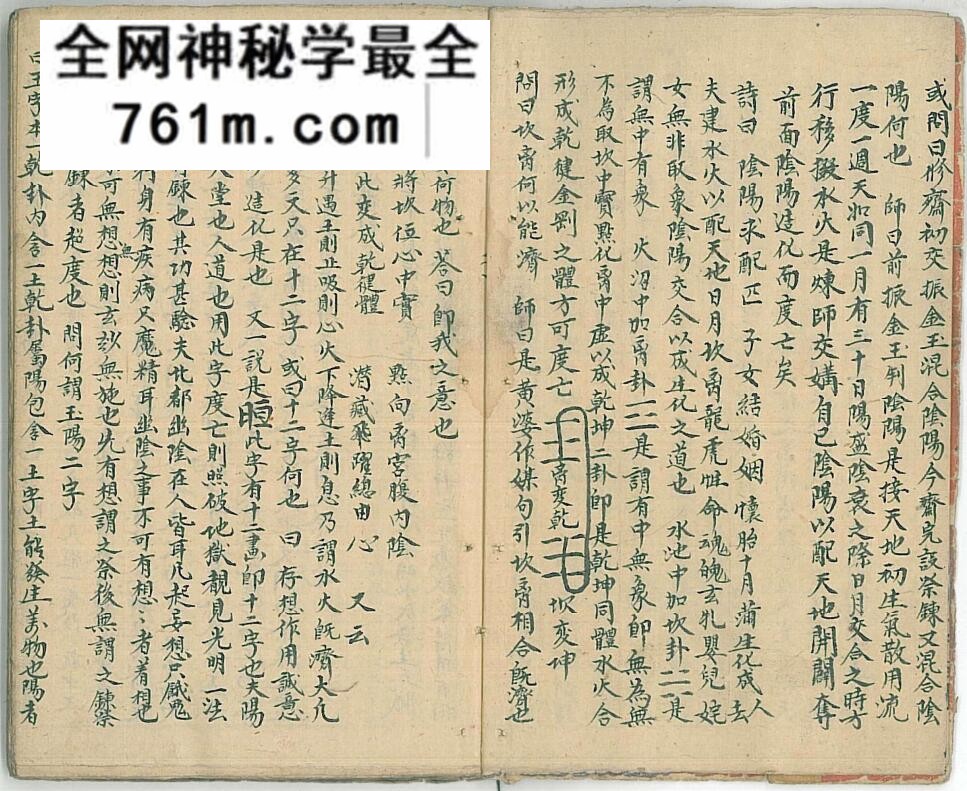 全网神秘学最全
761m.com
或問曰修齋初交振金玉混合陰陽今齋完設祭鍊又混合陰
陽何也 師曰前振金玉判陰陽是接天地初生氣散用流
一度一週天如同一月有三十日陽盛陰衰之際日月交合之時方
行移撥水火是煉師交媾自己陰陽以配天地開闢奪
前面陰陽造化而度亡矣
詩曰 陰陽求配匹 子女結婚姻 懷胎十月蒲 生化成人去
夫建水火以配天地日月坎离龍虎性命魂魄玄牝嬰兒姹
女無非取象陰陽交合以成生化之道也 水池中加坎卦是
謂無中有象 火沼中加离卦是謂有中無象即無為無
不為取坎中實點化离中虛以成乾坤二卦即是乾坤同體水火合
形成乾健金剛之體方可度亡 离变乾 坎変坤
問曰坎离何以能濟 師曰是黄婆作媒句引坎离相合既濟也
荷物也 答曰即我之意也
將坎位心中實 點向离宮腹内陰
此变成乾健體 潛藏飛躍總由心 又云
升遇王則止吸則心火下降逢土則息乃謂水火既濟大凡
多天只在十二字 或曰十二字何也 曰存想作用誠意
造化是也 又一説是 此字有十二畫即十二字也夫陽
堂也人道也用此字度亡則照破地獄覩見光明一法
鍊也其功甚驗夫北都幽陰在人皆耳凡起妄想只餓鬼
身有疾病只魔精耳幽陰之事不可有想想者着想也
可無想想則玄妙無施也先有想謂之祭後無謂之鍊祭
鍊者超度也 問何謂玉陽二字
曰玉字本一乾卦内含一土乾卦屬陽包含一王字土能發生萬物也陽者